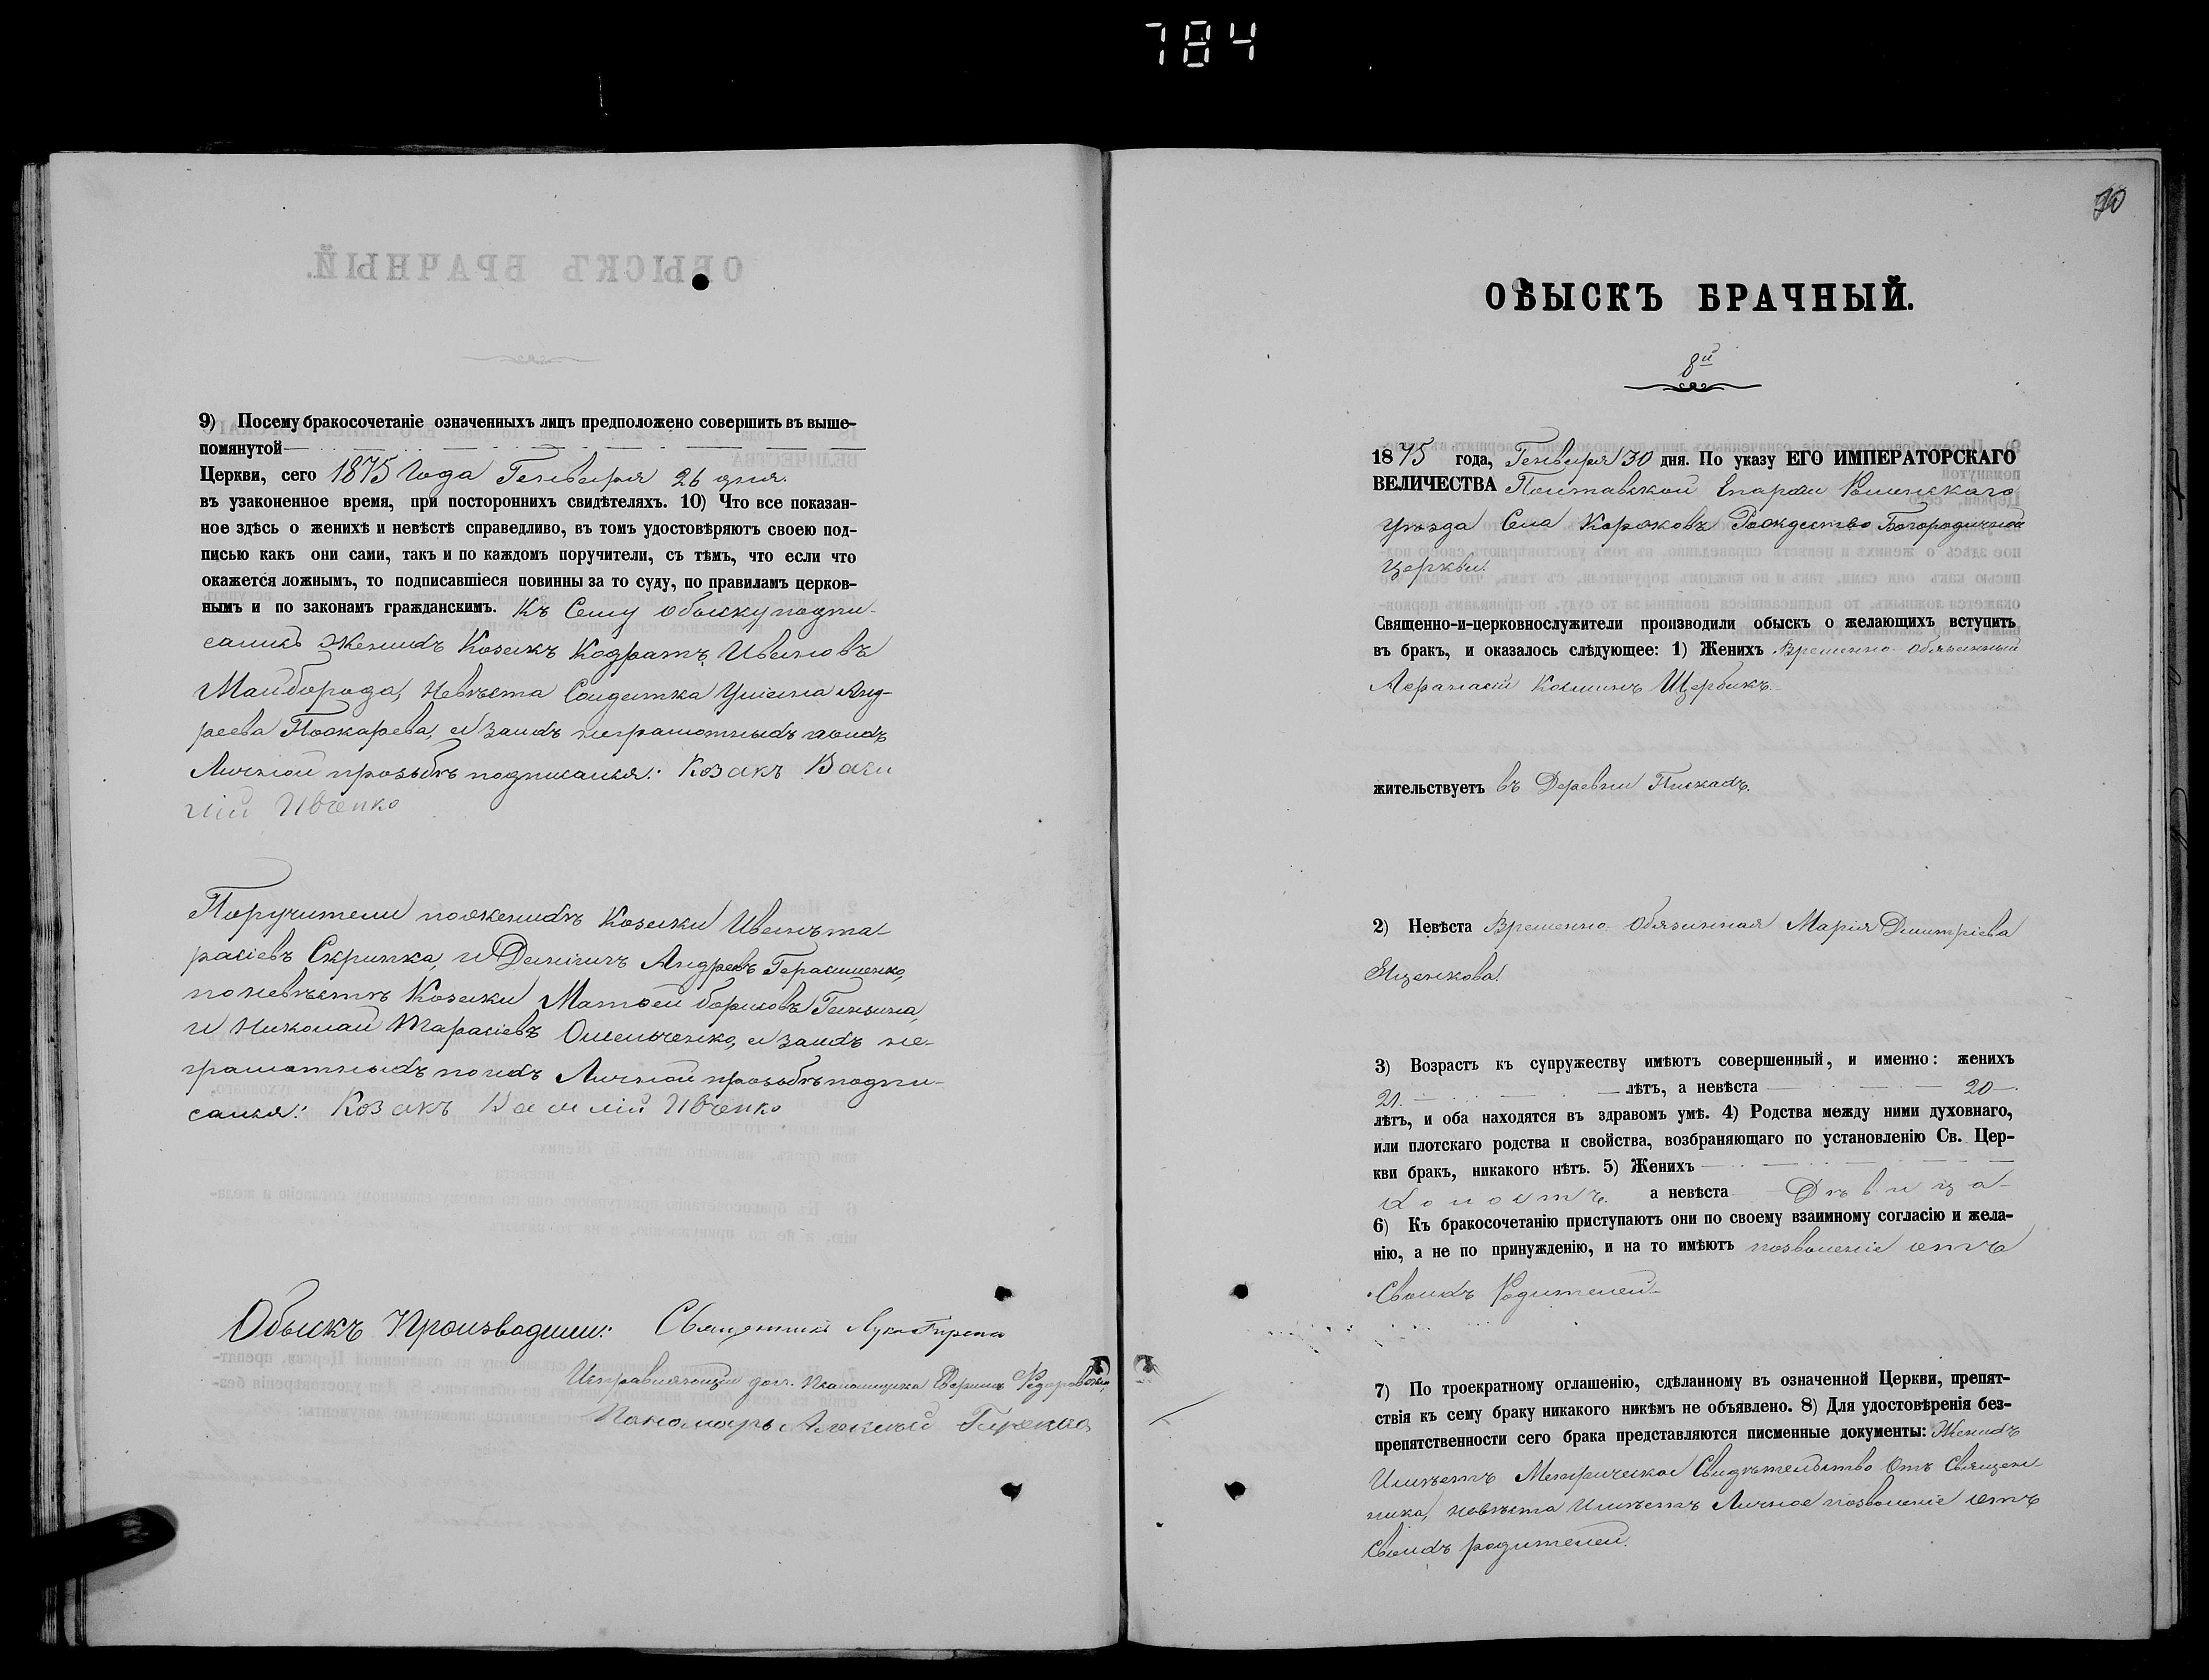 784
9) Посему бракосочетаніе означенныхъ лицъ предположено совершить въ выше-
помянутой
Церкви, сего 1875 Года Генваря 26 дня.
въ узаконенное время, при постороннихъ свидѣтеляхъ. 10) Что все показан-
ное здѣсь о женихѣ и невѣстѣ справедливо, въ томъ удостовѣряютъ своею под-
писью какъ они сами, такъ и по каждомъ поручители, съ тѣмъ, что если что
окажется ложнымъ, то подписавшіеся повинны за то суду, по правиламъ церков-
нымъ и по законамъ гражданскимъ. Къ Сему обыску подпи-
сались Женихъ Козакъ Кодратъ Ивановъ
Майборода, Невѣста Солдатка Анд-
реева а за ихъ неграмотныхъ по ихъ
Личной прозьбѣ подписался: Козакъ Васи
лій Ивченко
Поручители по женихѣ Козаки Иванъ Та-
расіевъ Скрипка, и Даніилъ Андреевъ Герасименко,
по невѣстѣ Козаки Матвей Борисовъ
и Николай Тарасіевъ Омельченко, а за ихъ не-
грамотныхъ по ихъ Личной прозьбѣ подпи-
сался: Козакъ Василій Ивченко
Обыскъ Производили: Священникъ Лука
Исправляющій дол. Псаломщика
Пономарь Алексѣй
ОБЫСКЪ БРАЧНЫЙ.
8й
1875 года, Генваря 30 дня. По указу ЕГО ИМПЕРАТОРСКАГО
ВЕЛИЧЕСТВА Полтавской Епархіи Роменскаго
уѣзда Села Коровковъ Рождество Богородичной
Церкви.
Священно-и-церковнослужители производили обыскъ о желающихъ вступить
въ бракъ, и оказалось слѣдующее: 1) Женихъ Временно Обязанный
Афанасій Косминъ Щербакъ.
жительствуетъ въ Деревни Пискахъ.
2) Невѣста Временно Обязанная Марія Димитріева
Яценкова.
3) Возрастъ къ супружеству имѣютъ совершенный, и именно: женихъ
21. лѣтъ, а невѣста 20
лѣтъ, и оба находятся въ здравомъ умѣ. 4) Родства между ними духовнаго,
или плотскаго родства и свойства, возбраняющаго по установленію Св. Цер-
кви бракъ, никакого нѣтъ. 5) Женихъ
Холостъ. а невѣста Дѣвица
6) Къ бракосочетанію приступаютъ они по своему взаимному согласію и жела-
нію, а не по принужденію, и на то имѣютъ позволеніе отъ
Своихъ Родителей
7) По троекратному оглашенію, сдѣланному въ означенной Церкви, препят-
ствія къ сему браку никакого никѣмъ не объявлено. 8) Для удостовѣренія без-
препятственности сего брака представляются писменные документы: Женихъ
Имѣетъ Метрическое Свидѣтельство Отъ Священ-
ника, невѣста Имѣетъ Личное позволеніе отъ
Своихъ родителей.